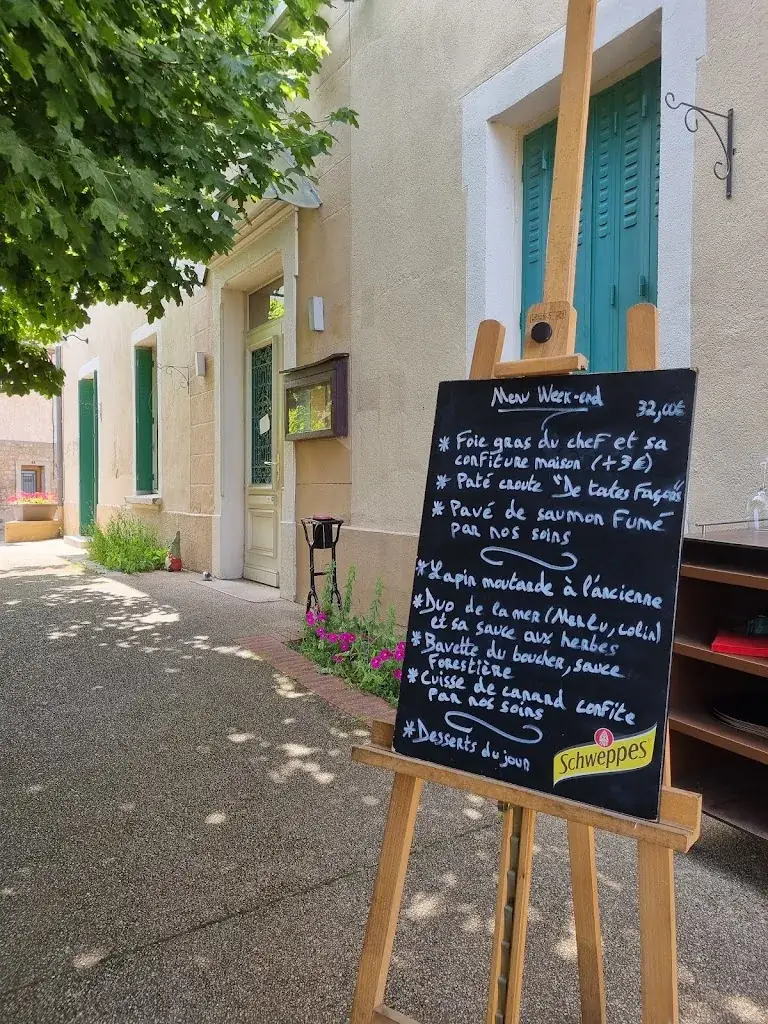 Menu Week-end
32,00€
* Foie gras du chef et sa
confiture maison (+3€)
* Paté croute "De tates Façons"
* Pavé de saumon Fumé
par nos soins
* Lapin moutarde à l'ancienne
* Duo de la mer (Merlu, colin)
et sa sauce aux herbes
* Bavette du boucher, sauce
Forestière
* Cuisse de canard confite
par nos soins
* Desserts du jour
Schweppes